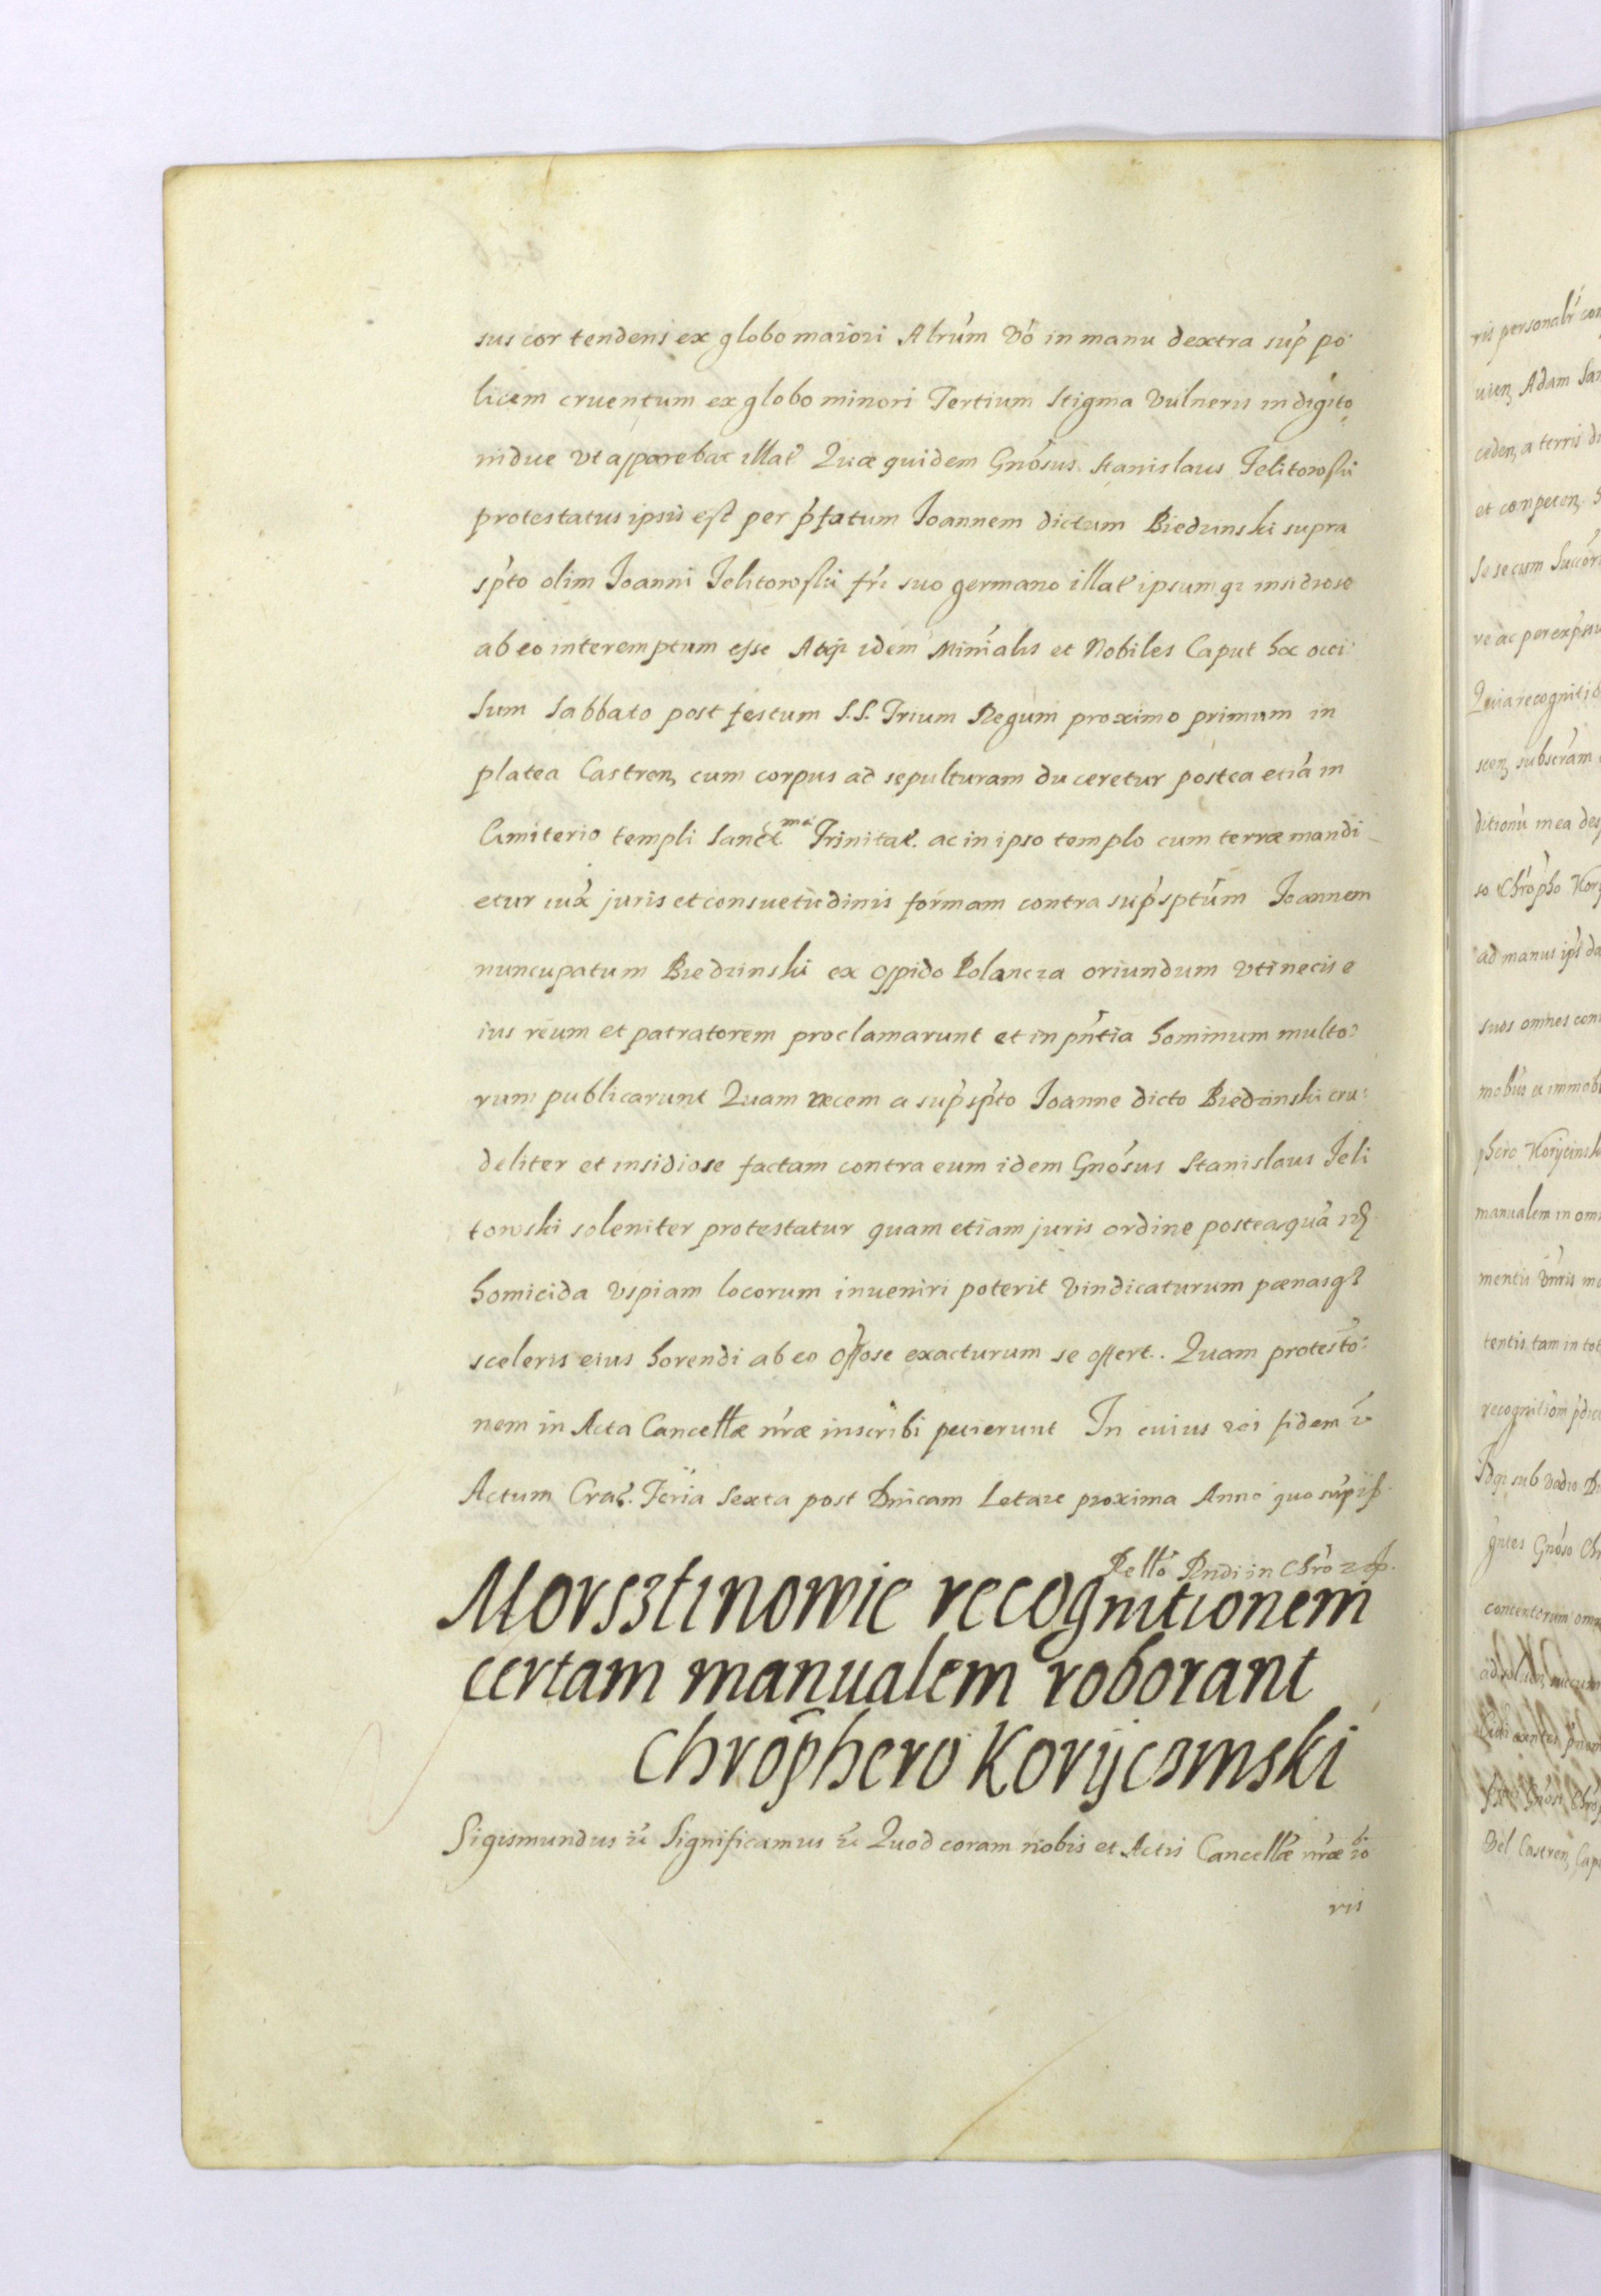 sus cor tendens ex globo maiori Alrum Vo in manu dextra sup po
licem cruentum ex globo minori Tertium Stigma Vulneris in digito
indue vt apparebat illat Quæ quidem Gnosus Stanislaus Jelitowski
protestatus ipsis est per pfatum Joannem dictum Biedzinski supra
spto olim Joanni Jelitowski fri suo germano illat ipsumq insidiose
ab eo interemptum esse Atq idem Minialis et Nobiles Caput hoc occi:
sum Sabbato post festum S.S. Trium Regum proximo primum in
platea Castren, cum corpus ad sepulturam duceretur postea etiã in
Cimiterio templi Sanct.mæ Trinitat. ac in ipso templo cum terræ mandi
etur iux juris et consuetudinis formam contra supsptum Joannem
nuncupatum Biedzinski ex oppido Polancza oriundum vti necis e
ius reum et patratorem proclamarunt et in pntia hominum multo:
rum publicarunt Quam necem a supspto Joanne dicto Biedzinski cru:
deliter et insidiose factam contra eum idem Gnosus Stanislaus Jeli
towski soleniter protestatur quam etiam juris ordine posteaquã
homicida vspiam locorum inueniri poterit vindicaturum pænasq
sceleris eius horendi ab eo exacturum se offert. Quam protesto:
nem in Acta Cancellæ nræ inscribi petierunt In cuius rei fidem
Actum Crac. Feria Sexta post Dnicam Letare proxima Anno quo sup
in Chro
Morsztinowie recognitionem
certam manualem roborant
Chrophero Korycinski
Sigismundus Significamus Quod coram nobis et Actis Cancellæ nræ
ris
ris personalr con
Adam San
ceden, a terris
et competen,
Se se cum Succor
ve ac per
Quia recognitio
scen, subscram
ditionu mea des
so Chropho Kory
ad manus ips da
suos omnes
mobus et immob
phero Korycinsk
manualem in om
mentis
tentis tam in tot
recognitiom pdic
Idq sub vadio
Gnoso Ch
contentorum om
Vel Castren, Cap